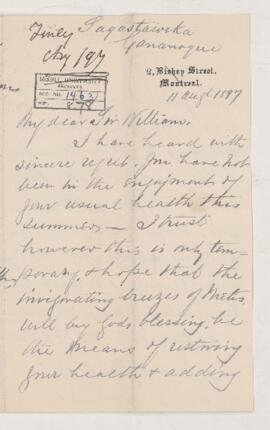 Finley
Aug /97
Sagastaweka
Gananoque
McGILL UNIVERSITY
ARCHIVES
ACC. NO. 1463
REF. 878
2, Bishop Street,
Montreal.
11 Augt 1897
My dear Sir William,
I have heard with
sincere regret. You have not
been in the enjoyment of
your usual health this
summer — I trust
however this is only tem-
porary, & hope that the
invigorating breezes of Metis,
will by Gods blessing, be
the means of restoring
your health & adding